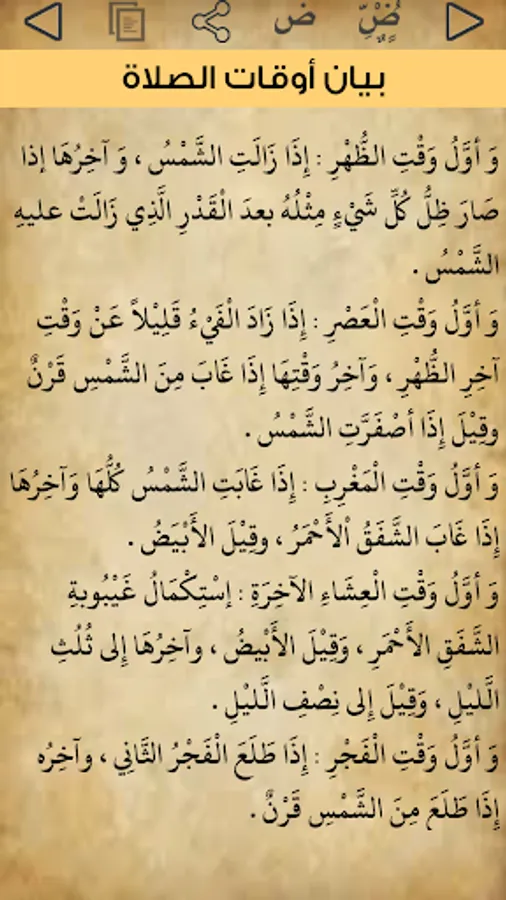 ض ضٌِّ
بيان أوقات الصلاة
وَ أوَّلُ وَقْتِ الظُّهْرِ : إِذَا زَالَتِ الشَّمْسُ ، وَ آخِرُهَا إذا
صَارَ ظِلُّ كُلِّ شَيْءٍ مِثْلُهُ بعدَ الْقَدْرِ الَّذِي زَالَتْ عليهِ
الشَّمْسُ .
وَ أوَّلُ وَقْتِ الْعَصْرِ : إِذَا زَادَ الْفَيْءُ قَلِيْلاً عَنْ وَقْتِ
آخِرِ الظُّهْرِ ، وَآخِرُ وَقْتِهَا إِذَا غَابَ مِنَ الشَّمْسِ قَرْنٌ
وقِيْلَ إِذَا أصْفَرَّتِ الشَّمْسُ .
وَ أوَّلُ وَقْتِ الْمَغْرِبِ : إِذَا غَابَتِ الشَّمْسُ كُلُّهَا وَآخِرُهَا
إِذَا غَابَ الشَّفَقُ اْلأَحْمَرُ ، وقِيْلَ الأَبْيَضُ .
وَ أوَّلُ وَقْتِ الْعِشَاءِ الآخِرَةِ : إسْتِكْمَالُ غَيْبُوبةِ
الشَّفَقِ الأَحْمَرِ ، وَقِيْلَ الأَبْيضُ ، وآخِرُهَا إِلى ثُلُثِ
الَّليْلِ ، وَقِيْلَ إِلى نِصْفِ الَّليْلِ .
وَ أوَّلُ وَقْتِ الْفَجْرِ : إِذَا طَلَعَ الْفَجْرُ الثَّانِي ، وآخِرُه
إِذَا طَلَعَ مِنَ الشَّمْسِ قَرْنٌ .